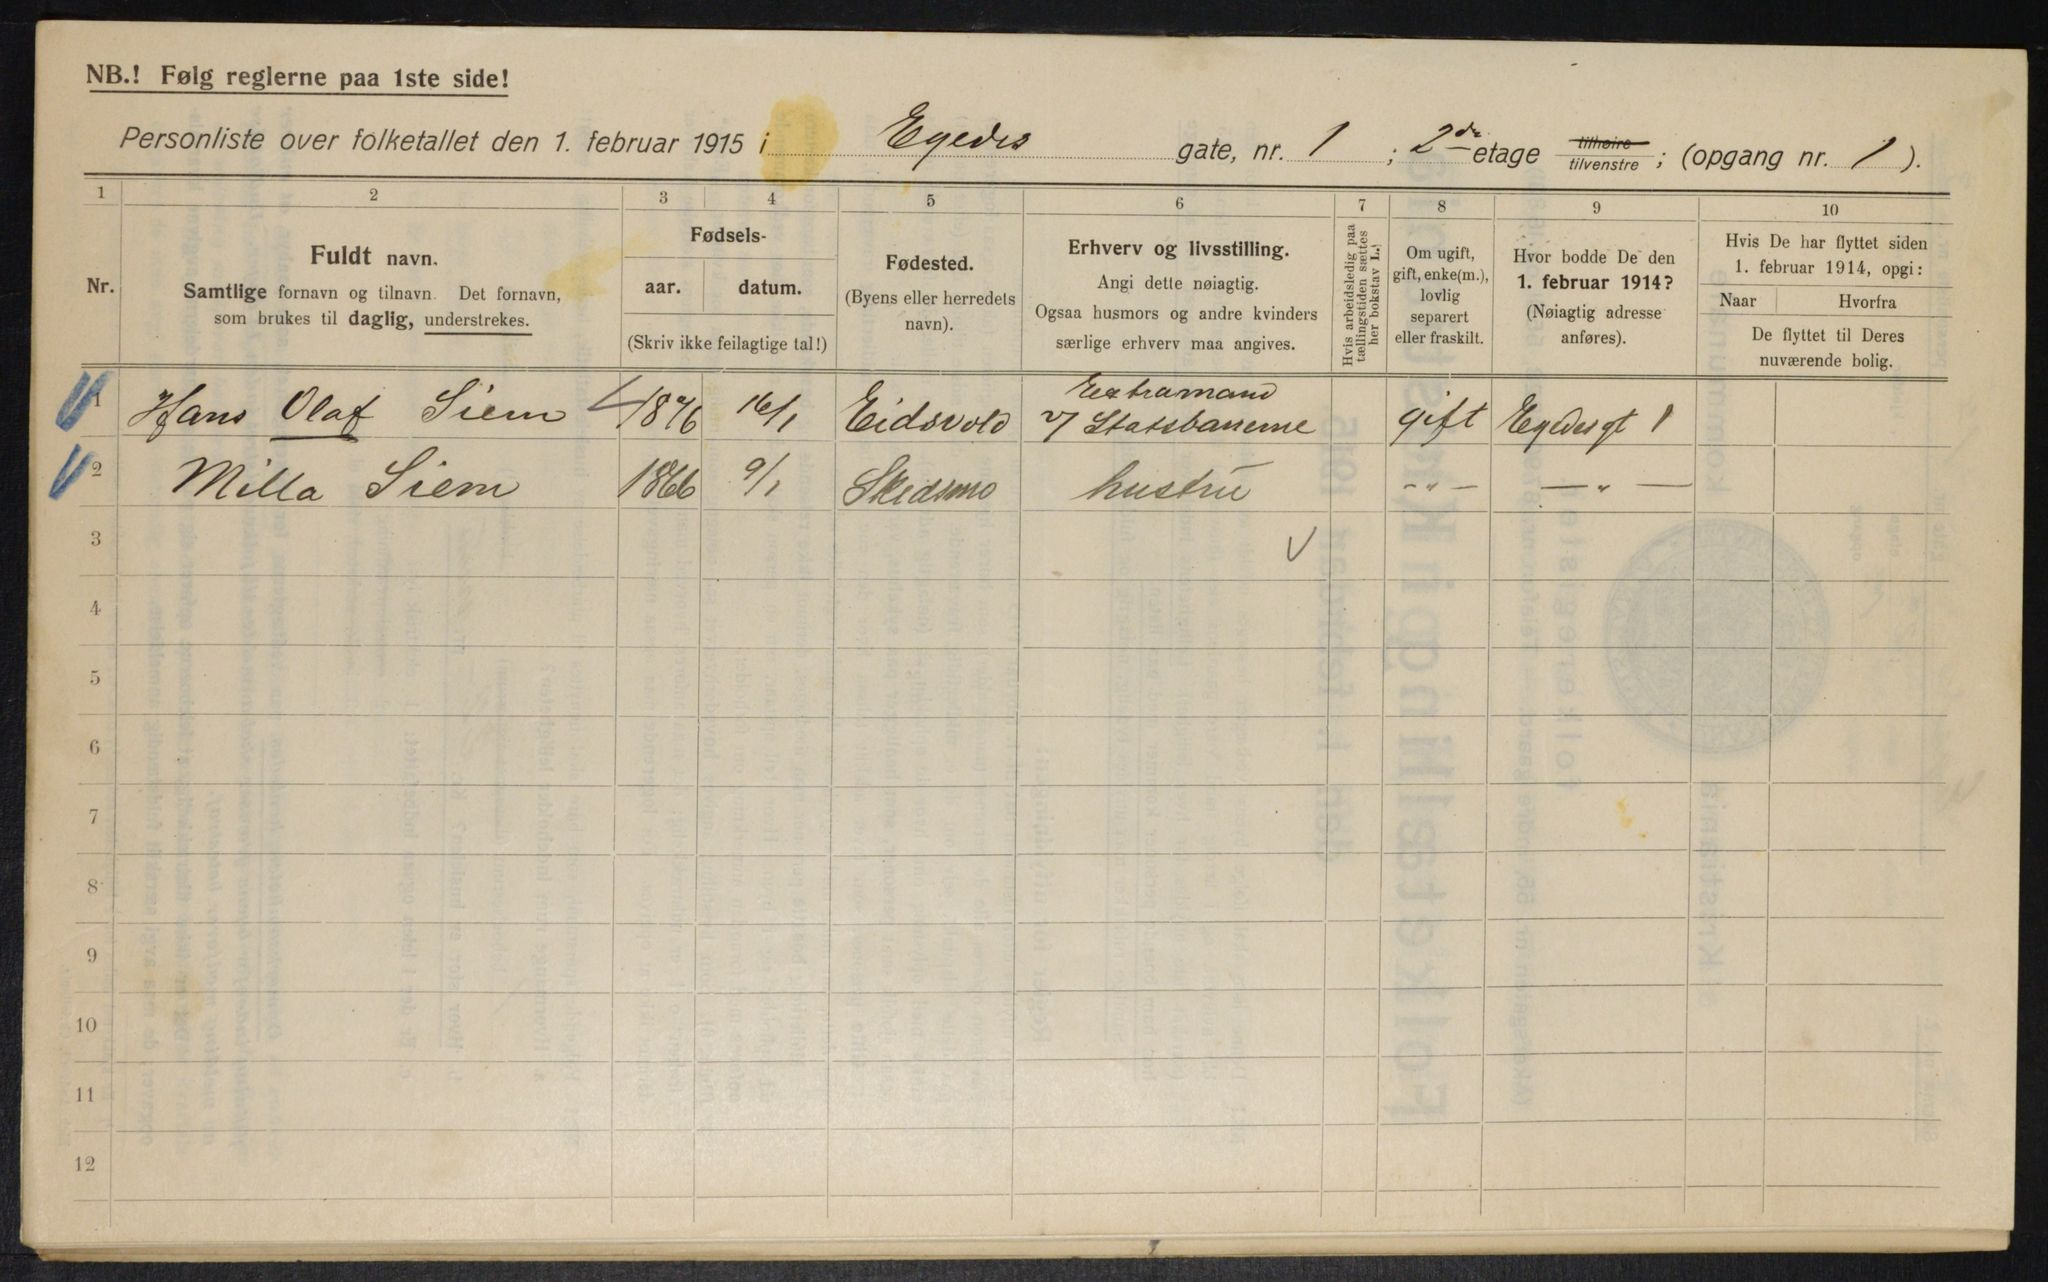 NB.! Følg reglerne paa 1ste side!
Personliste over folketallet den 1. februar 1915 i Egedes gate, nr. 1 ; 2den etage tilhøire tilvenstre ; (opgang nr. 1 ).
1 2 3 4 5 6 7 8 9 10
Nr.
Fuldt navn.
Samtlige fornavn og tilnavn. Det fornavn,
som brukes til daglig, understrekes.
Fødsels-
aar. datum.
(Skriv ikke feilagtige tal!)
Fødested.
(Byens eller herredets
navn).
Erhverv og livsstilling.
Angi dette nøiagtig.
Ogsaa husmors og andre kvinders
særlige erhverv maa angives.
Hvis arbeidsledig paa
tællingstiden sættes
her bokstav L.
Om ugift,
gift, enke(m.),
lovlig
separert
eller fraskilt.
Hvor bodde De den
1. februar 1914?
(Nøiagtig adresse
anføres).
Hvis De har flyttet siden
1. februar 1914, opgi:
Naar Hvorfra
De flyttet til Deres
nuværende bolig.
1 Hans Olaf Siem 1876 16/1 Eidsvold Extramand
v/ Statsbanerne gift Egedesgt 1
2 Milla Siem 1866 9/1 Skedsmo hustru -„- -„-
3
4
5
6
7
8
9
10
11
12